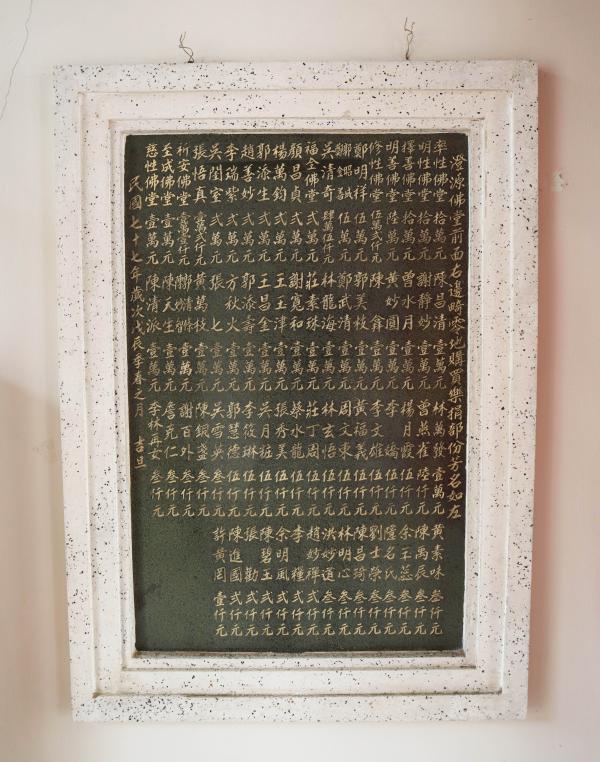 澄源佛堂前面右邊畸零地購買樂捐部份芳名如左
率性佛堂 拾萬元 陳昌清 壹萬元 林萬發 壹萬元 黃素味 叁仟元
明性佛堂 拾萬元 謝靜妙 壹萬元 曾燕崔 陸仟元 陳萬辰 叁仟元
擇善佛堂 拾萬元 曾水月 壹萬元 楊月霞 伍仟元 余玉蕊 叁仟元
明善佛堂 陸萬元 黃妙圓 壹萬元 李嬌 伍仟元 隱名氏 叁仟元
修性佛堂 伍萬弍仟元 陳舜 壹萬元 李文雄 伍仟元 劉士榮 叁仟元
鄭明祥 伍萬元 郭美枝 壹萬元 黃福義 伍仟元 陳昌琦 叁仟元
鄭 誠 伍萬元 鄭武清 壹萬元 周文東 伍仟元 林明心 叁仟元
吳清奇 肆萬伍仟元 林龍海 壹萬元 林玄悟 伍仟元 洪妙蓮 叁仟元
福全佛堂 弍萬元 莊素琳 壹萬元 莊丁周 伍仟元 趙妙禪 弍仟元
顏昌貞 弍萬元 謝寬和 壹萬元 蔡水龍 伍仟元 李糧 弍仟元
楊萬鈞 弍萬元 王玉津 壹萬元 張秀美 伍仟元 余明風 弍仟元
郭添生 弍萬元 王昌金 壹萬元 吳月 伍仟元 陳碧玉 弍仟元
趙善妙 弍萬元 郭添壽 壹萬元 李筱琳 伍仟元 張勸 弍仟元
李瑞紫 弍萬元 方秋火 壹萬元 郭慧德 伍仟元 陳進國 弍仟元
吳閨室 弍萬元 張七 壹萬元 吳雪英 伍仟元 許黃罔 壹仟元
張悟真 壹萬弍仟元 黃萬枝 壹萬元 陳銀盞 叁仟元
祈安佛堂 壹萬壹仟元 壹萬元 謝百外 叁仟元
至成佛堂 壹萬元 陳天生 壹萬元 詹克仁 叁仟元
慈性佛堂 壹萬元 陳清派 壹萬元 李林再女 叁仟元
民國七十七年歲次戊辰季春之月 吉旦